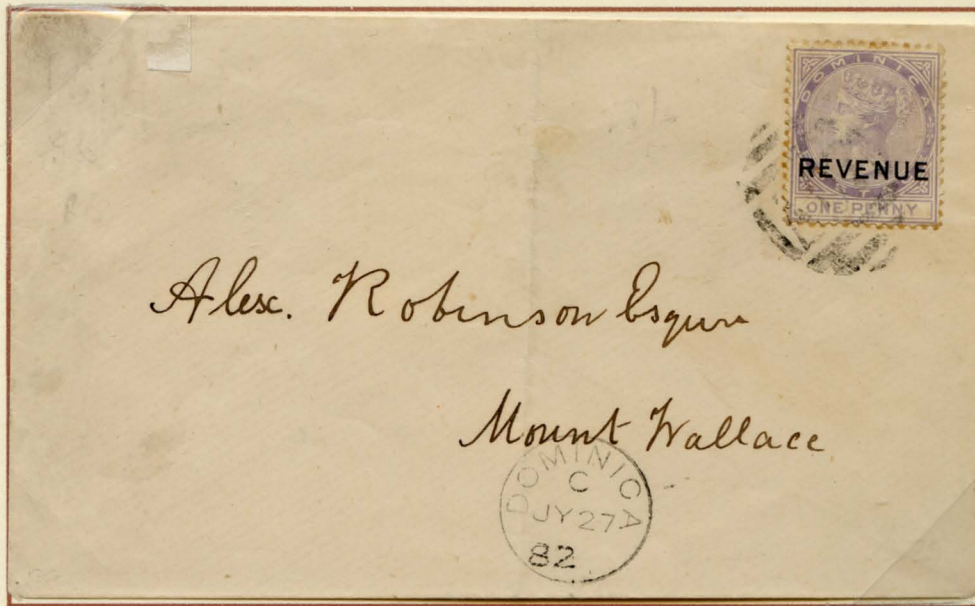 DOMINICA
REVENUE
ONE PENNY
Alex. Robinson Esquire
Mount Wallace
DOMINICA
C
JY 27
82